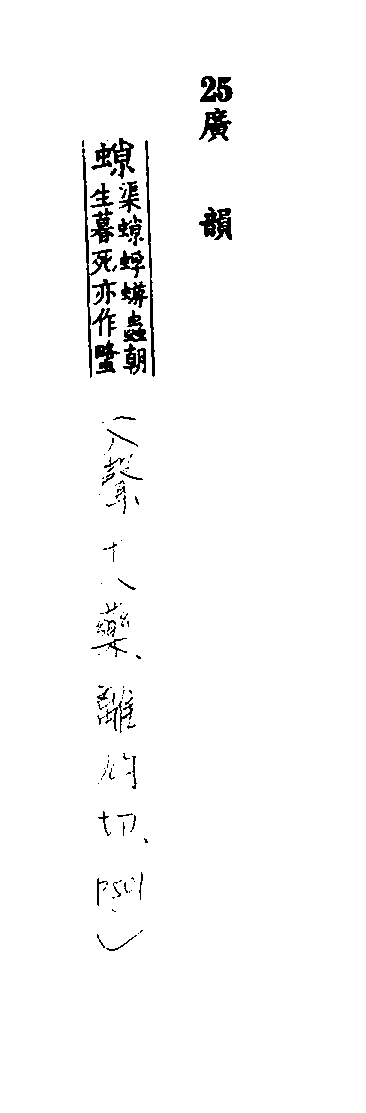 25廣韻
渠蜉蝣蟲朝
生暮死亦作
(入聲十八藥、離灼切、P501)